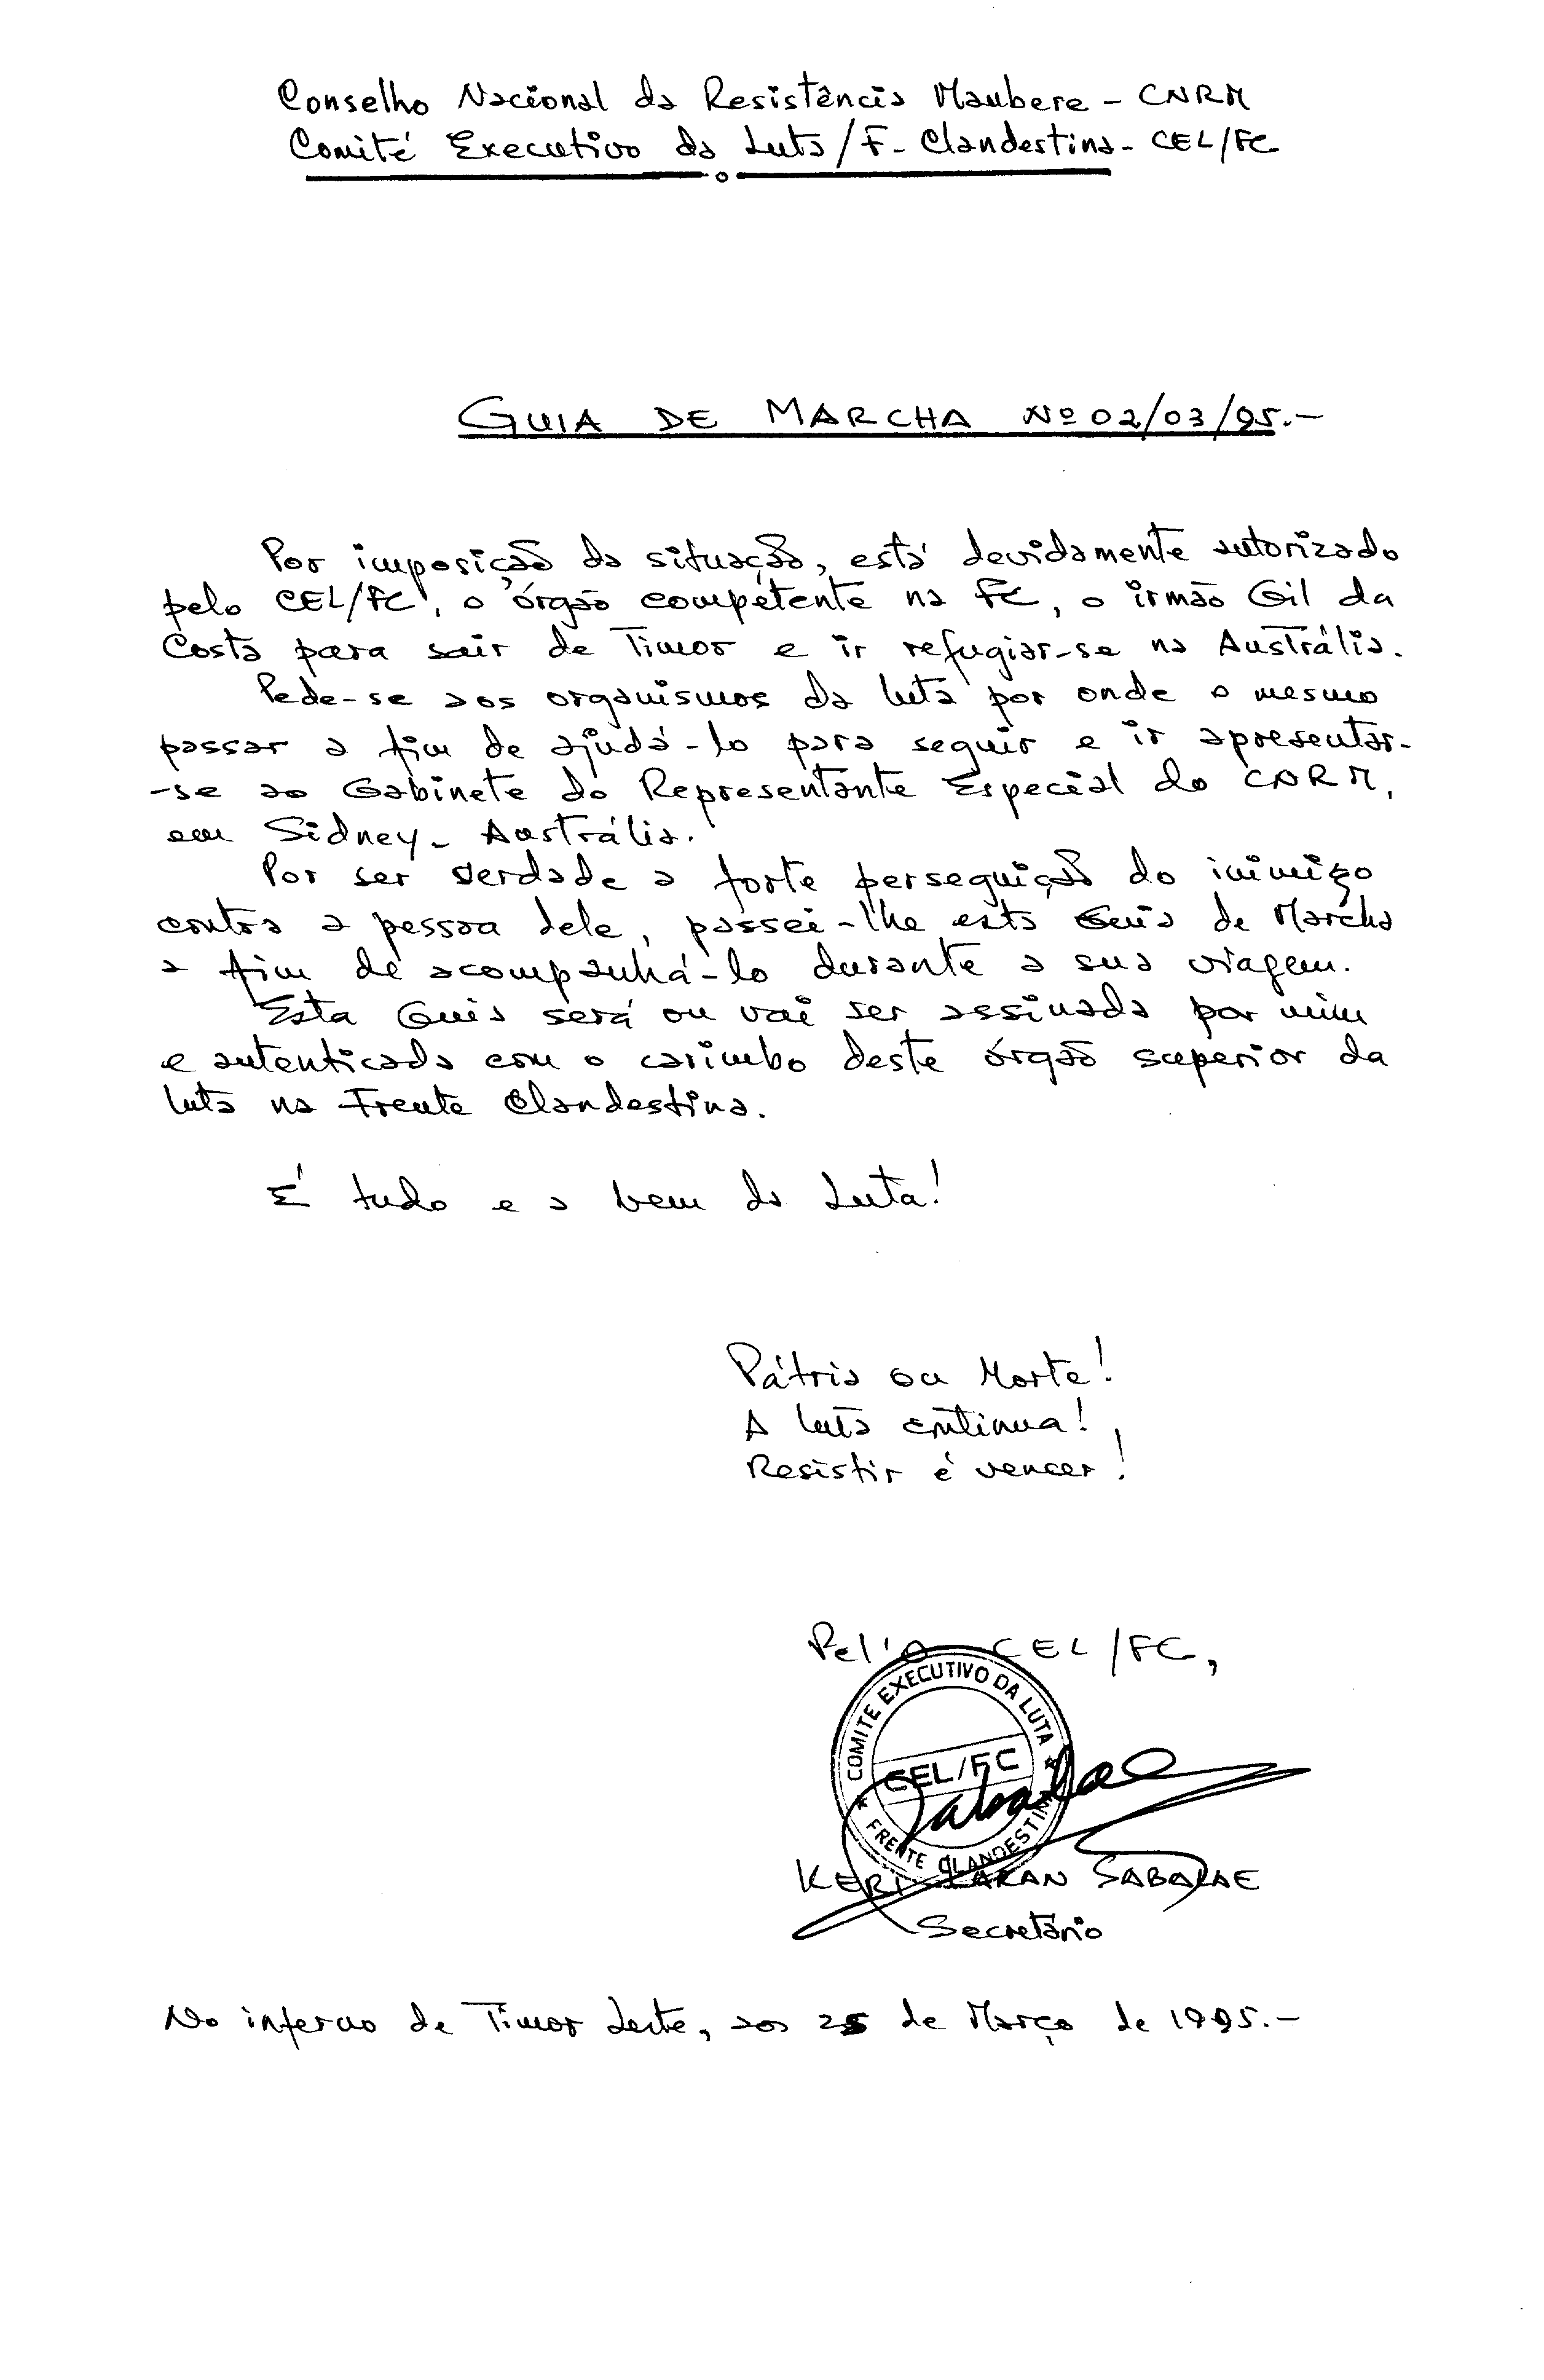 Conselho Nacional da Resistência Maubere - CNRM
Comité Executivo da Luta/F. Clandestina - CEL/FC
GUIA DE MARCHA Nº 02/03/95.-
Por imposição da situação, está devidamente autorizado
pelo CEL/FC, o órgão competente na FC, o irmão Gil da
Costa para sair de Timor e ir refugiar-se na Austrália.
Pede-se aos organismos da luta por onde o mesmo
passar a fim de ajudá-lo para seguir e ir apresentar-
-se ao Gabinete do Representante Especial do CNRM,
em Sidney - Austrália.
Por ser verdade a forte perseguição do inimigo
contra a pessoa dele, passei-lhe esta Guia de Marcha
a fim de acompanhá-lo durante a sua viagem.
Esta Guia será ou vai ser assinada por mim
e autenticada com o carimbo deste órgão superior da
luta na Frente Clandestina.
É tudo e a bem da Luta!
Pátria ou Morte!
A luta continua!
Resistir é vencer!
Pel'O CEL/FC,
COMITE EXECUTIVO DA LUTA
CEL/FC
FRENTE CLANDESTINA
Sabalae
KERI LARAN SABALAE
Secretário
No inferno de Timor Leste, aos 25 de Março de 1995.-